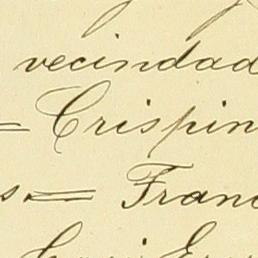 vecindad
= Crispin
s.= Franc